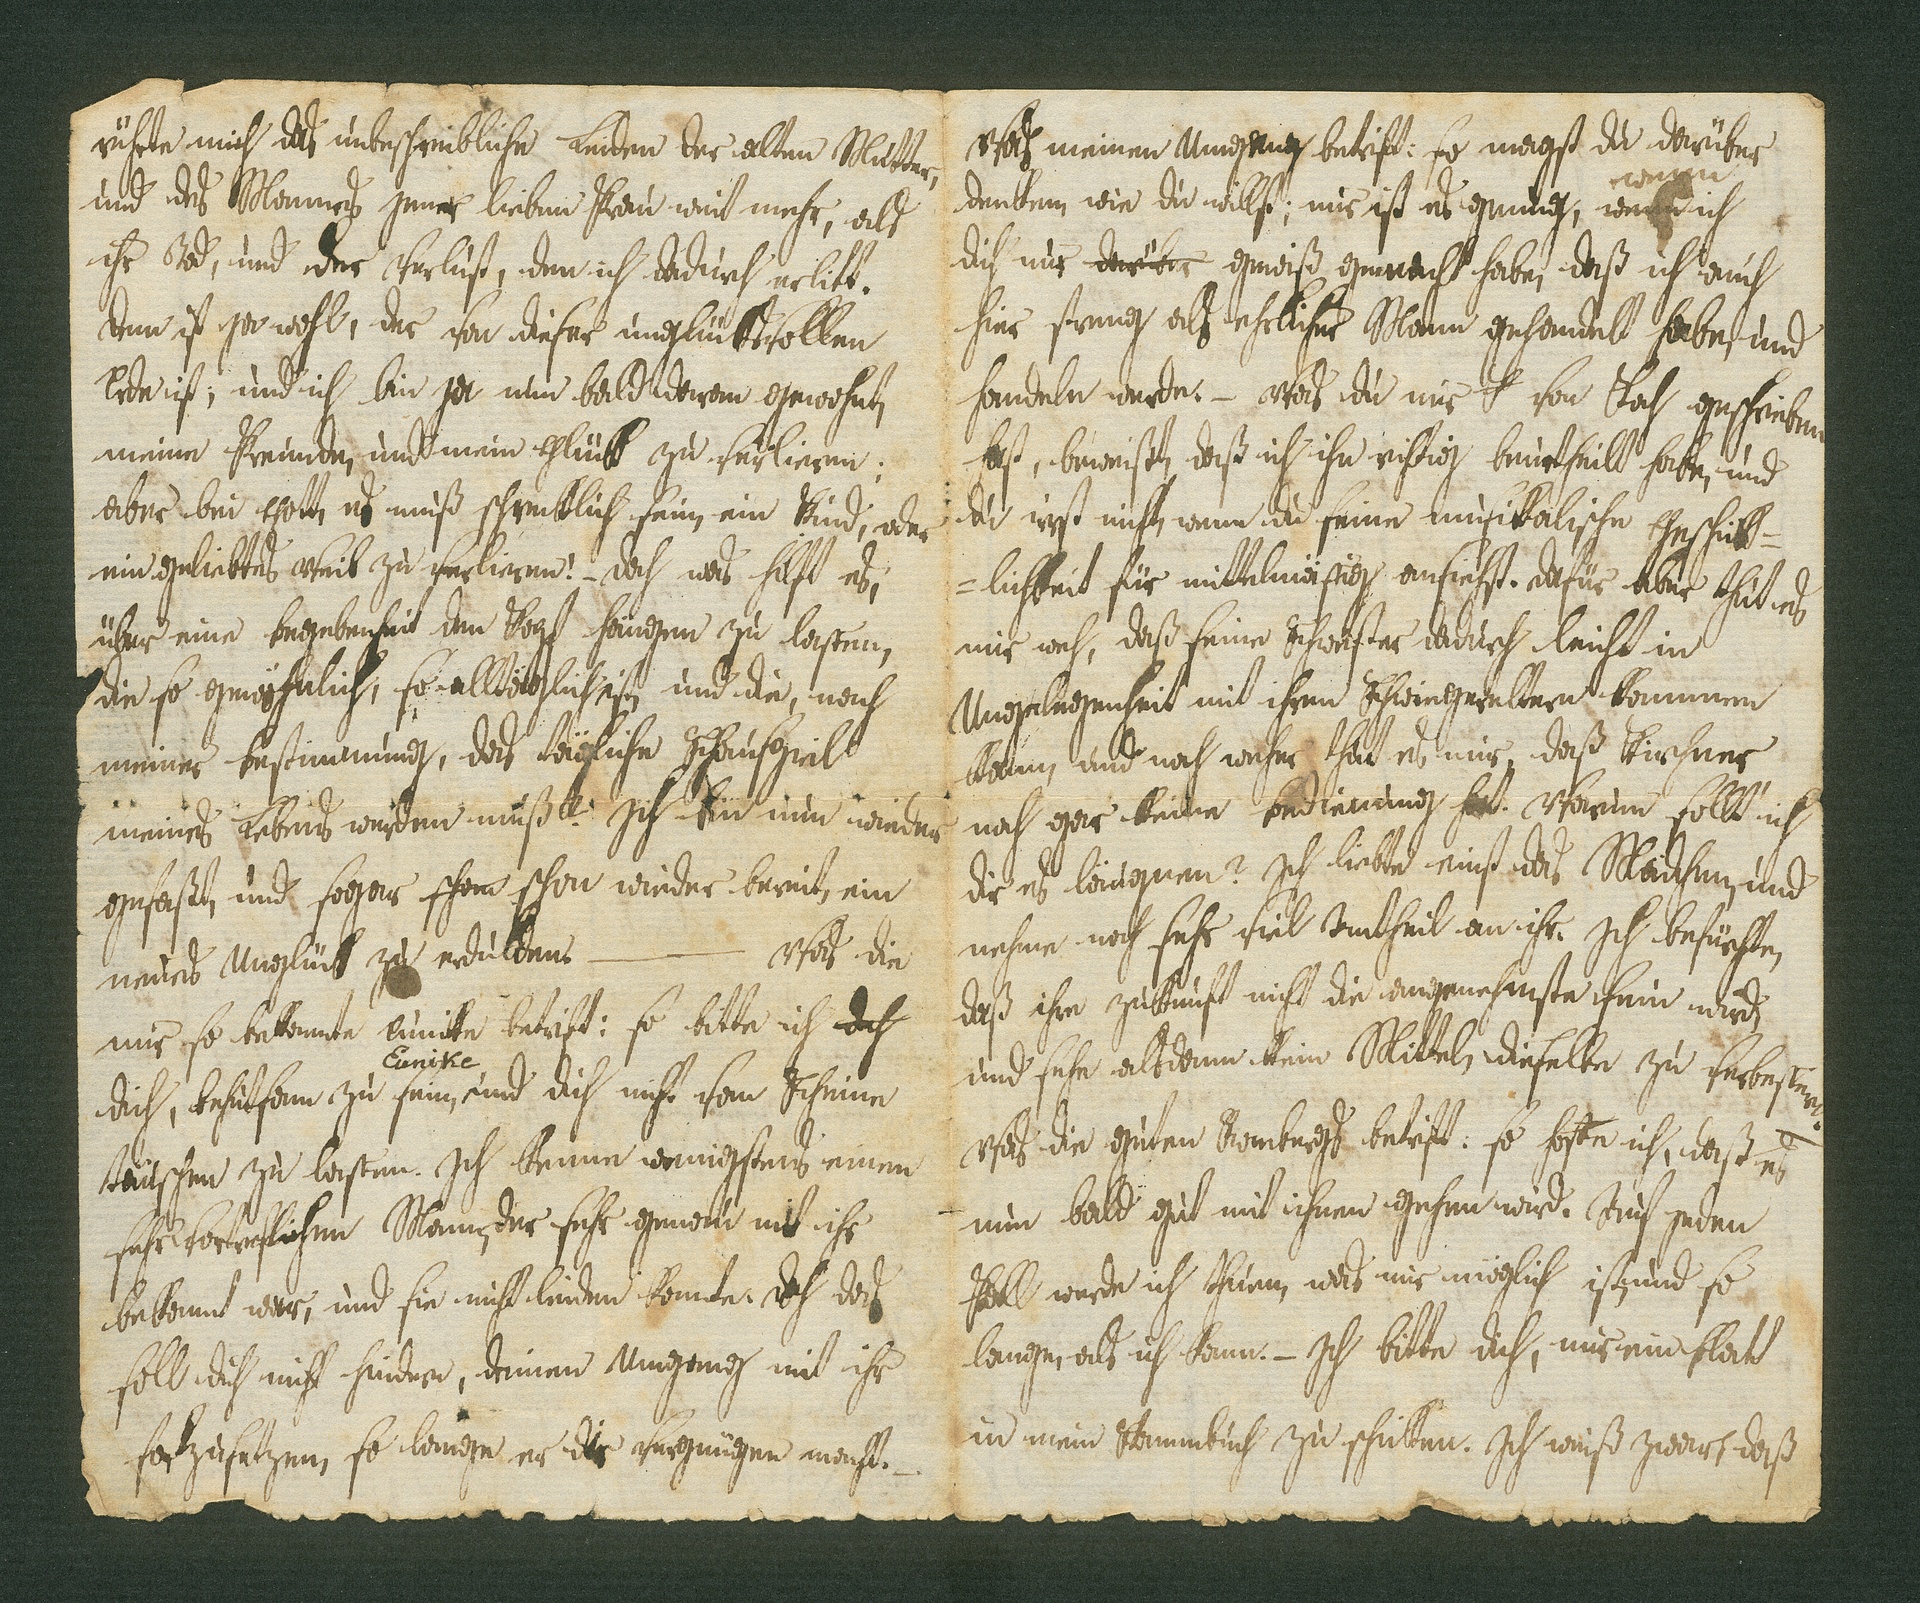 rührte mich das unbeschreibliche Leiden der alten Mutter,
und des Mannes jener lieben Frau weit mehr, als
ihr Tod, und der Verlust, den ich dadurch erlitt.
Dem ist ja wohl, der von dieser unglücksvollen
Erde ist; und ich bin ja nun bald daran gewohnt,
meine Freunde, und mein Glück zu verlieren;
aber bei Gott, es muß schrecklich sein, ein Kind, oder
ein geliebtes Weib zu verlieren! – Doch was hilft es,
über eine Begebenheit den Kopf hängen zu lassen,
die so gewöhnlich, so alltäglich ist, und die, nach
meiner Bestimmung, das tägliche Schauspiel
meines Lebens werden muß. Ich bin nun wieder
gefaßt, und sogar schon schon wieder bereit, ein
neues Unglück zu erdulden. ——— Was die
mir so bekannte Eunike betrift: so bitte ich doch
Eunike
dich, behutsam zu sein, und dich nicht vom Scheine
täuschen zu lassen. Ich kenne wenigstens einen
sehr vortreflichen Mann, der sehr genau mit ihr
bekannt war, und sie nicht leiden konnte. Doch das
soll dich nicht hindern, deinen Umgang mit ihr
fortzusetzen, so lange er dir Vergnügen macht. –
Was meinen Umgang betrift: so magst du darüber
wenn
denken, wie du willst; mir ist es genung, wenn ich
dich nur darüber gewiß gemacht habe, daß ich auch
hier streng als ehrlicher Mann gehandelt habe, und
handeln werde. – Was du mir von Koch geschrieben
hast, beweist, daß ich ihn richtig beurtheilt habe, und
du irrst nicht, wenn du seine musikalische Geschick=
=lichkeit für mittelmäßig ansiehst. Dafür aber thut es
mir weh, daß seine Schwester dadurch leicht in
Ungelegenheit mit ihren Schwiegereltern kommen
kann, und noch weher thut es mir, daß Kirchner
noch gar keine Bedienung hat. Warum sollt' ich
dir es läugnen? Ich liebte einst das Mädchen, und
nehme noch sehr viel Antheil an ihr. Ich befürchte,
daß ihre Zukunft nicht die angenehmste sein wird,
und sehe alsdann kein Mittel, dieselbe zu verbessern.
Was die guten Rombergs betrift: so hoffe ich, daß es
nun bald gut mit ihnen gehen wird. Auf jeden
Fall werde ich thuen, was mir möglich ist, und so
lange, als ich kann. – Ich bitte dich, mir ein Blatt
in mein Stammbuch zu schicken. Ich weiß zwar, daß